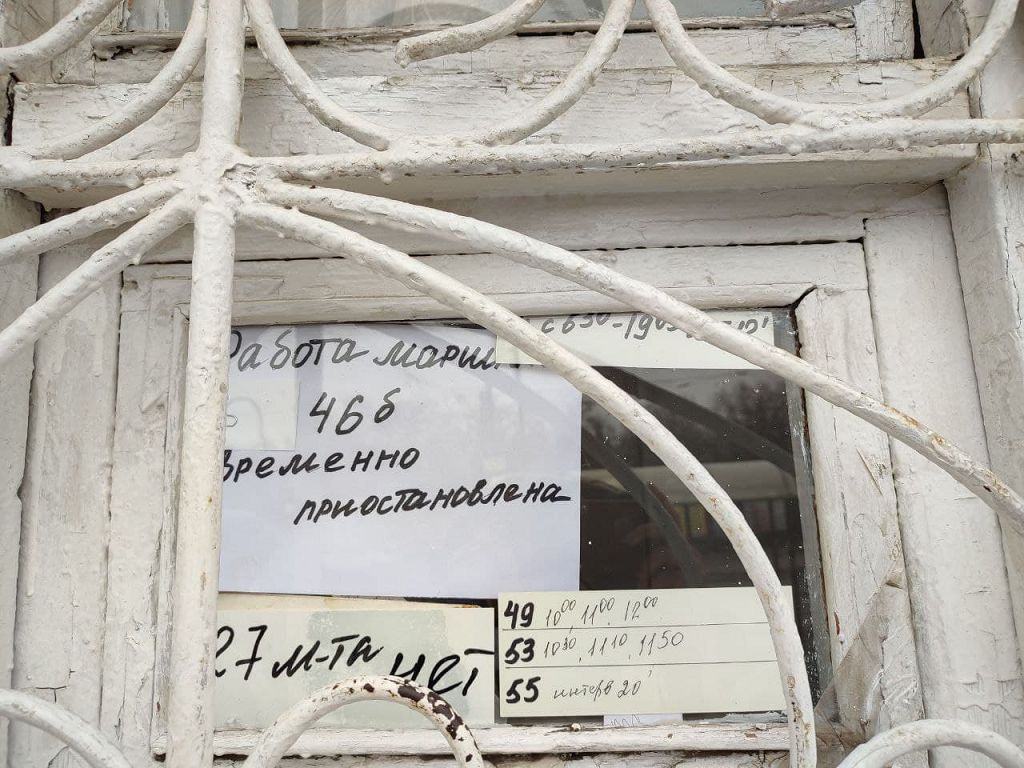 с 6³⁰-19⁰⁵
Работа марш
46 б
временно
приостановлена
27 м-та нет
49 10⁰⁰, 11⁰⁰. 12⁰⁰
53 10³⁰, 11¹⁰, 11⁵⁰
55 интерв 20'